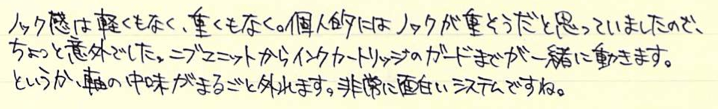 ノック感は軽くもなく、重くもなく。個人的にはノックが重そうだと思っていましたので、
ちょっと意外でした。ニブユニットからインクカートリッジのガードまでが一緒に動きます。
というか、軸の中味がまるごと外れます。非常に面白いシステムですね。